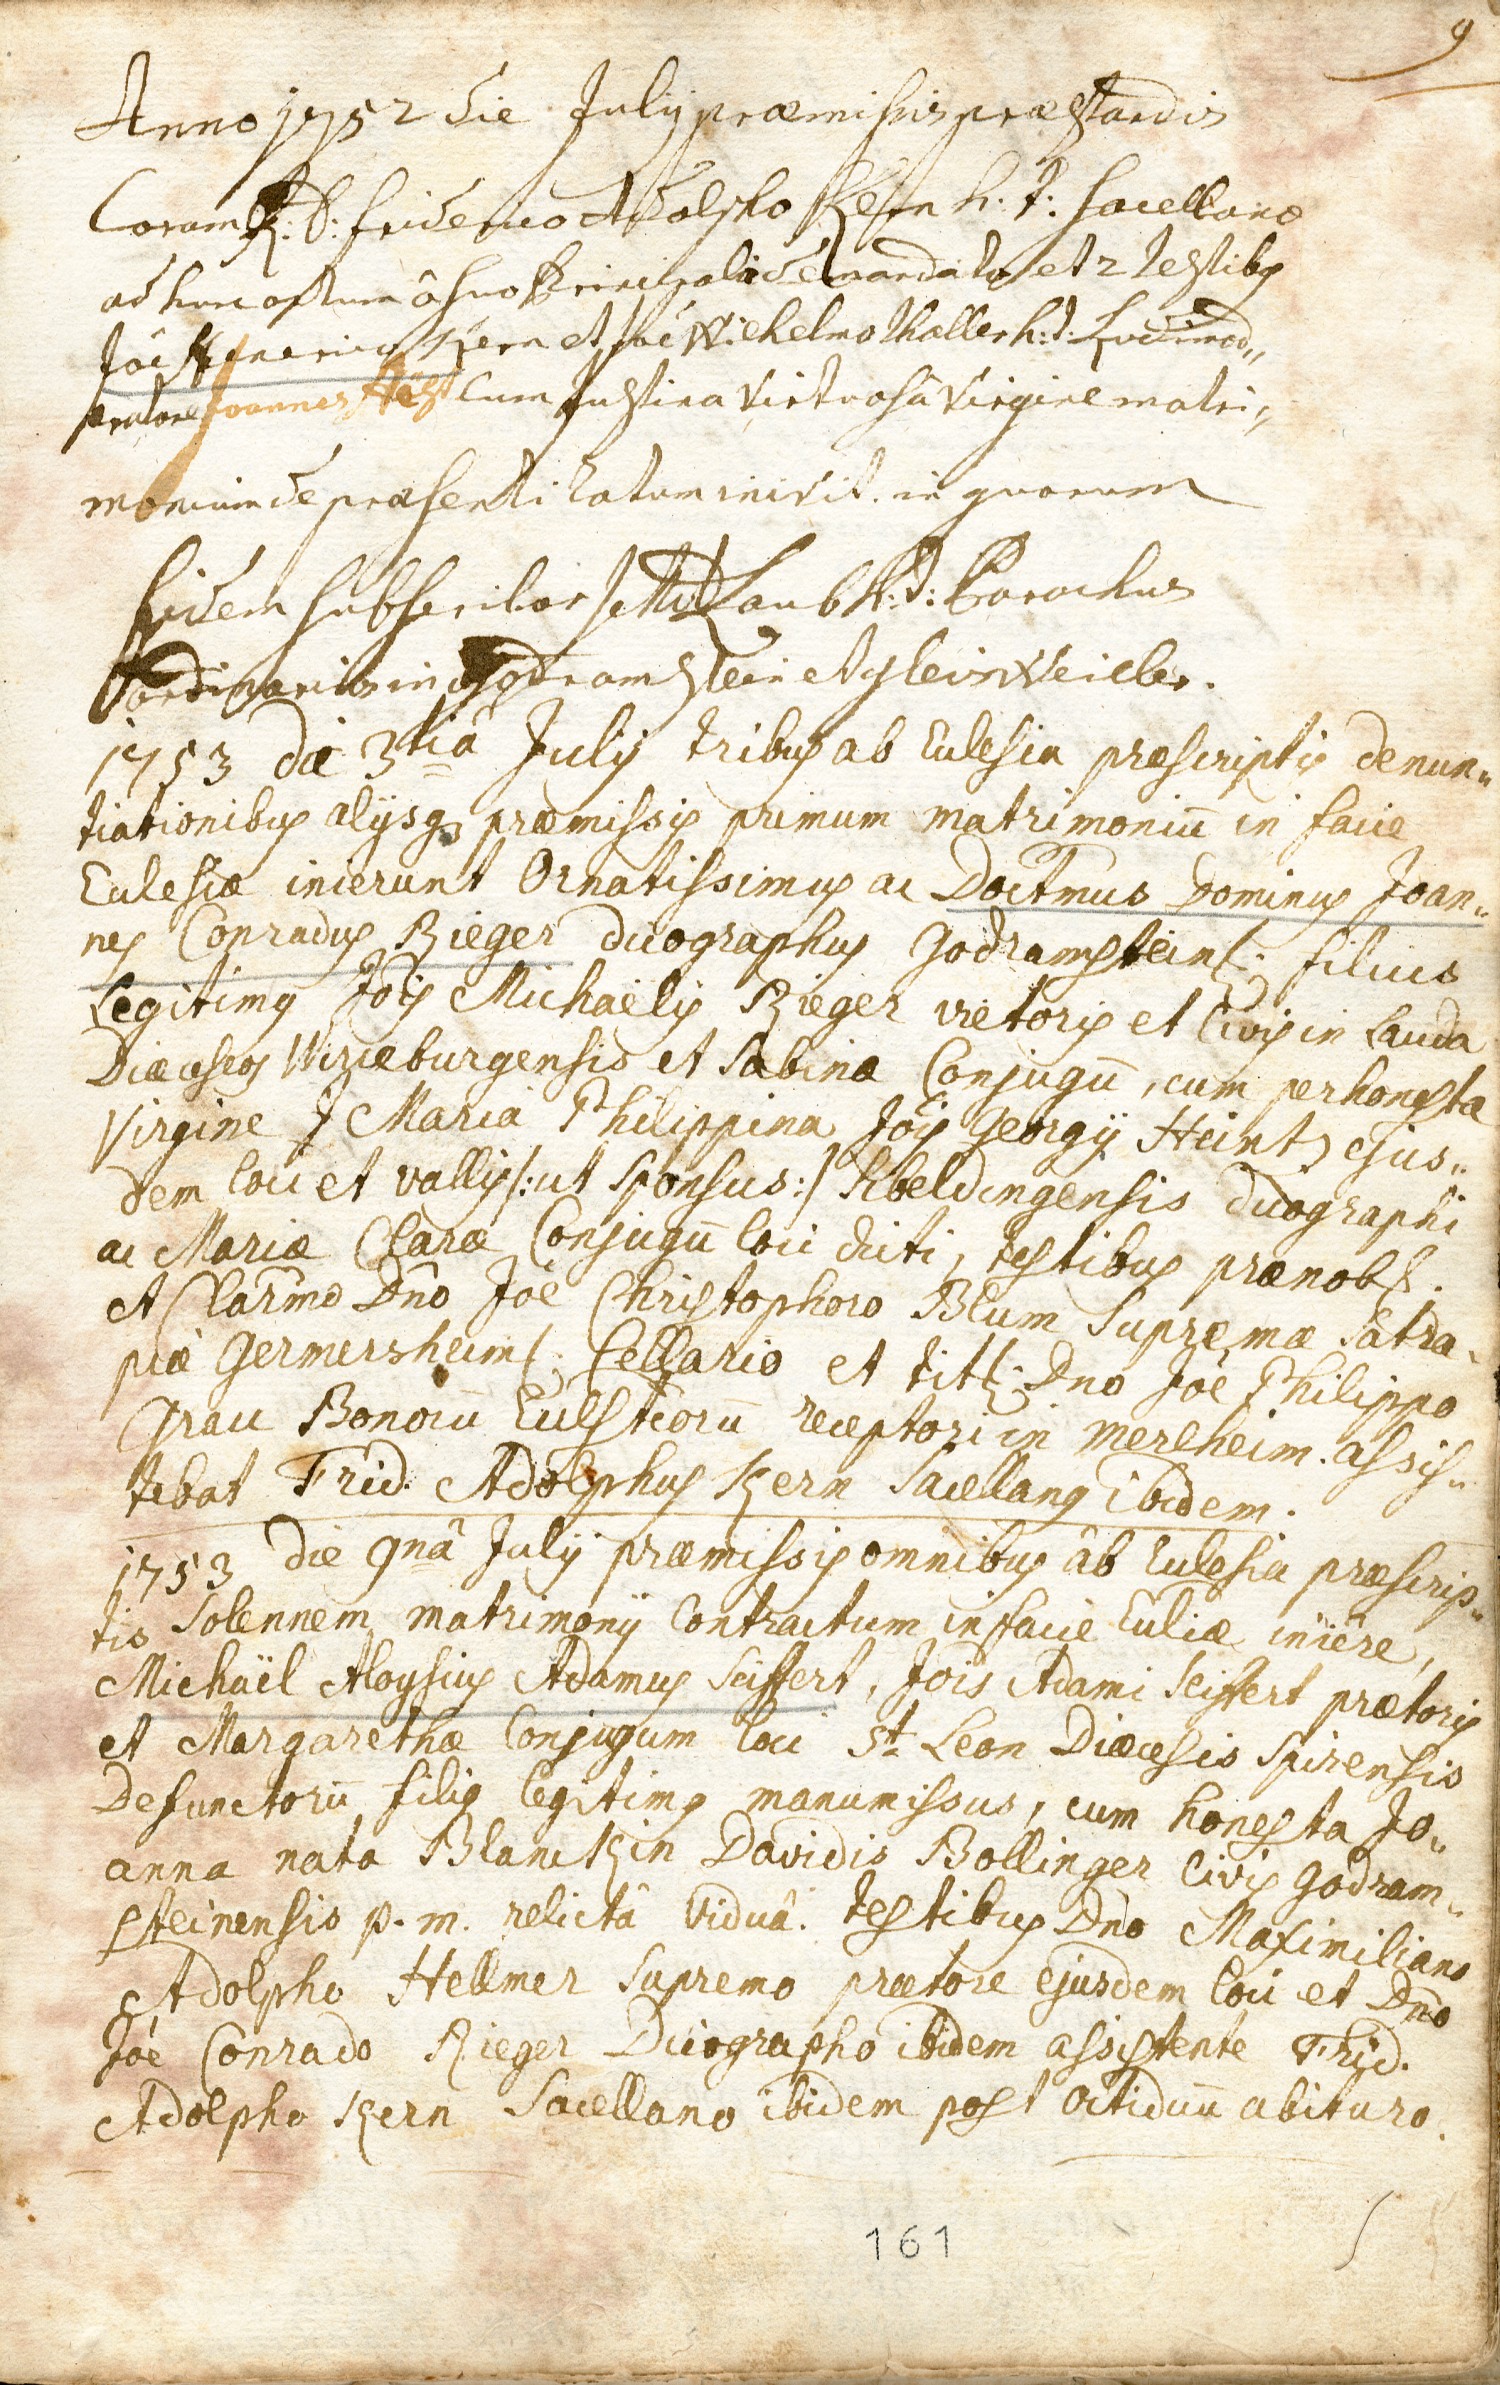 9
Anno 1752 die July præmissis præstandis
Coram R: D: friderico Adolpho Kern h: t: sacellano
ad hunc actum â suo Principali demandato et 2 testibq
Joê Kern et Joê Wilhelmo Thaller h: t: Ludimod„
eratore Joannes cum Justina Virtuosâ Virgine matri„
monium de præsenti ratum inivit. in quorum
fidem subscribor Laub h: t: Parochus
ordinarius in godramstein et gleisweiler.
1753 die 3tiâ July tribus ab Eclesia præscriptis denun„
tiationibus alijsq præmissis primum matrimoniū in facie
Eclesiæ inierunt Ornatissimus ac Doctmus Dominus Joan„
nes Conradus Rieger dicographus godramstein: filius
Legitimq Jois Michaëlis Rieger vietoris et Civis in Lauda
Diæceseos Wirceburgensis et Sabinæ Conjugū, cum perhonesta
Virgine Maria Philippina Jois Georgij Heintz ejus„
dem loci et vallis /:ut sponsus:/ sibeldingensis dicographi
ac Mariæ Claræ Conjugū loci dicti, testibus prænob:
et Clarm̄o Dn̄o Joê Christophoro Blum supremæ satra„
piæ Germersheim: Cellario et titl: Dno Joê Philippo
Grau Bonorū Eclsticorū receptori in Merlheim. assis„
tebat Frid. Adolphus Kern Sacellanq ibidem.
1753 die 9nâ July præmissis omnibus âb Eclesia præscrip„
tis solennem matrimonij contractum in facie Ecliæ iniêre,
Michaël Aloysius Adamus Seiffert, Jois Adami Seiffert prætoris
et Margarethæ Conjugum loci St. Leon Diæcesis Spirensis
Defunctorū filiq legitimq manumissus, cum honesta Jo„
anna nata Blanckin Davidis Bollinger Civis godram„
steinensis p. m. relictâ viduâ. testibus Dn̄o Maximiliano
Adolpho Hellmer supremo prætore ejusdem loci et Dn̄o
Joê Conrado Rieger Dicographo ibidem assistente Frid.
Adolpho Kern Sacellano ibidem post octiduū abituro.
161